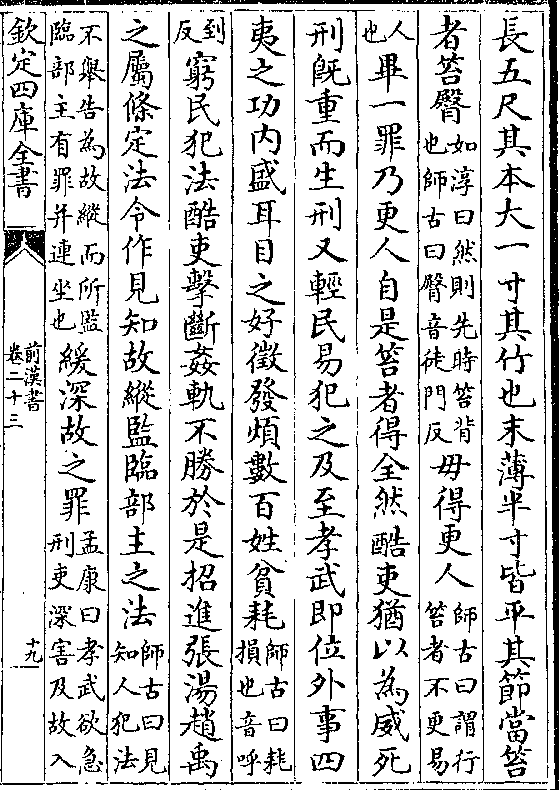 長五尺其本大一寸其竹也末薄半寸皆平其節當笞
者笞臀如淳曰然則先時笞背也師古曰臀音徒門反毋得更人師古曰謂行笞者不更易
人也畢一罪乃更人自是笞者得全然酷吏猶以為威死
刑既重而生刑又輕民易犯之及至孝武即位外事四
夷之功内盛耳目之好徴發煩數百姓貧耗師古曰耗損也音呼
到反窮民犯法酷吏擊斷姦軌不勝於是招進張湯趙禹
之屬條定法令作見知故縱監臨部主之法師古曰見知人犯法
不舉告為故縱而所監臨部主有罪并連坐也緩深故之罪孟康曰孝武欲急刑吏深害及故入
欽定四庫全書
前漢書
卷二十三
十九